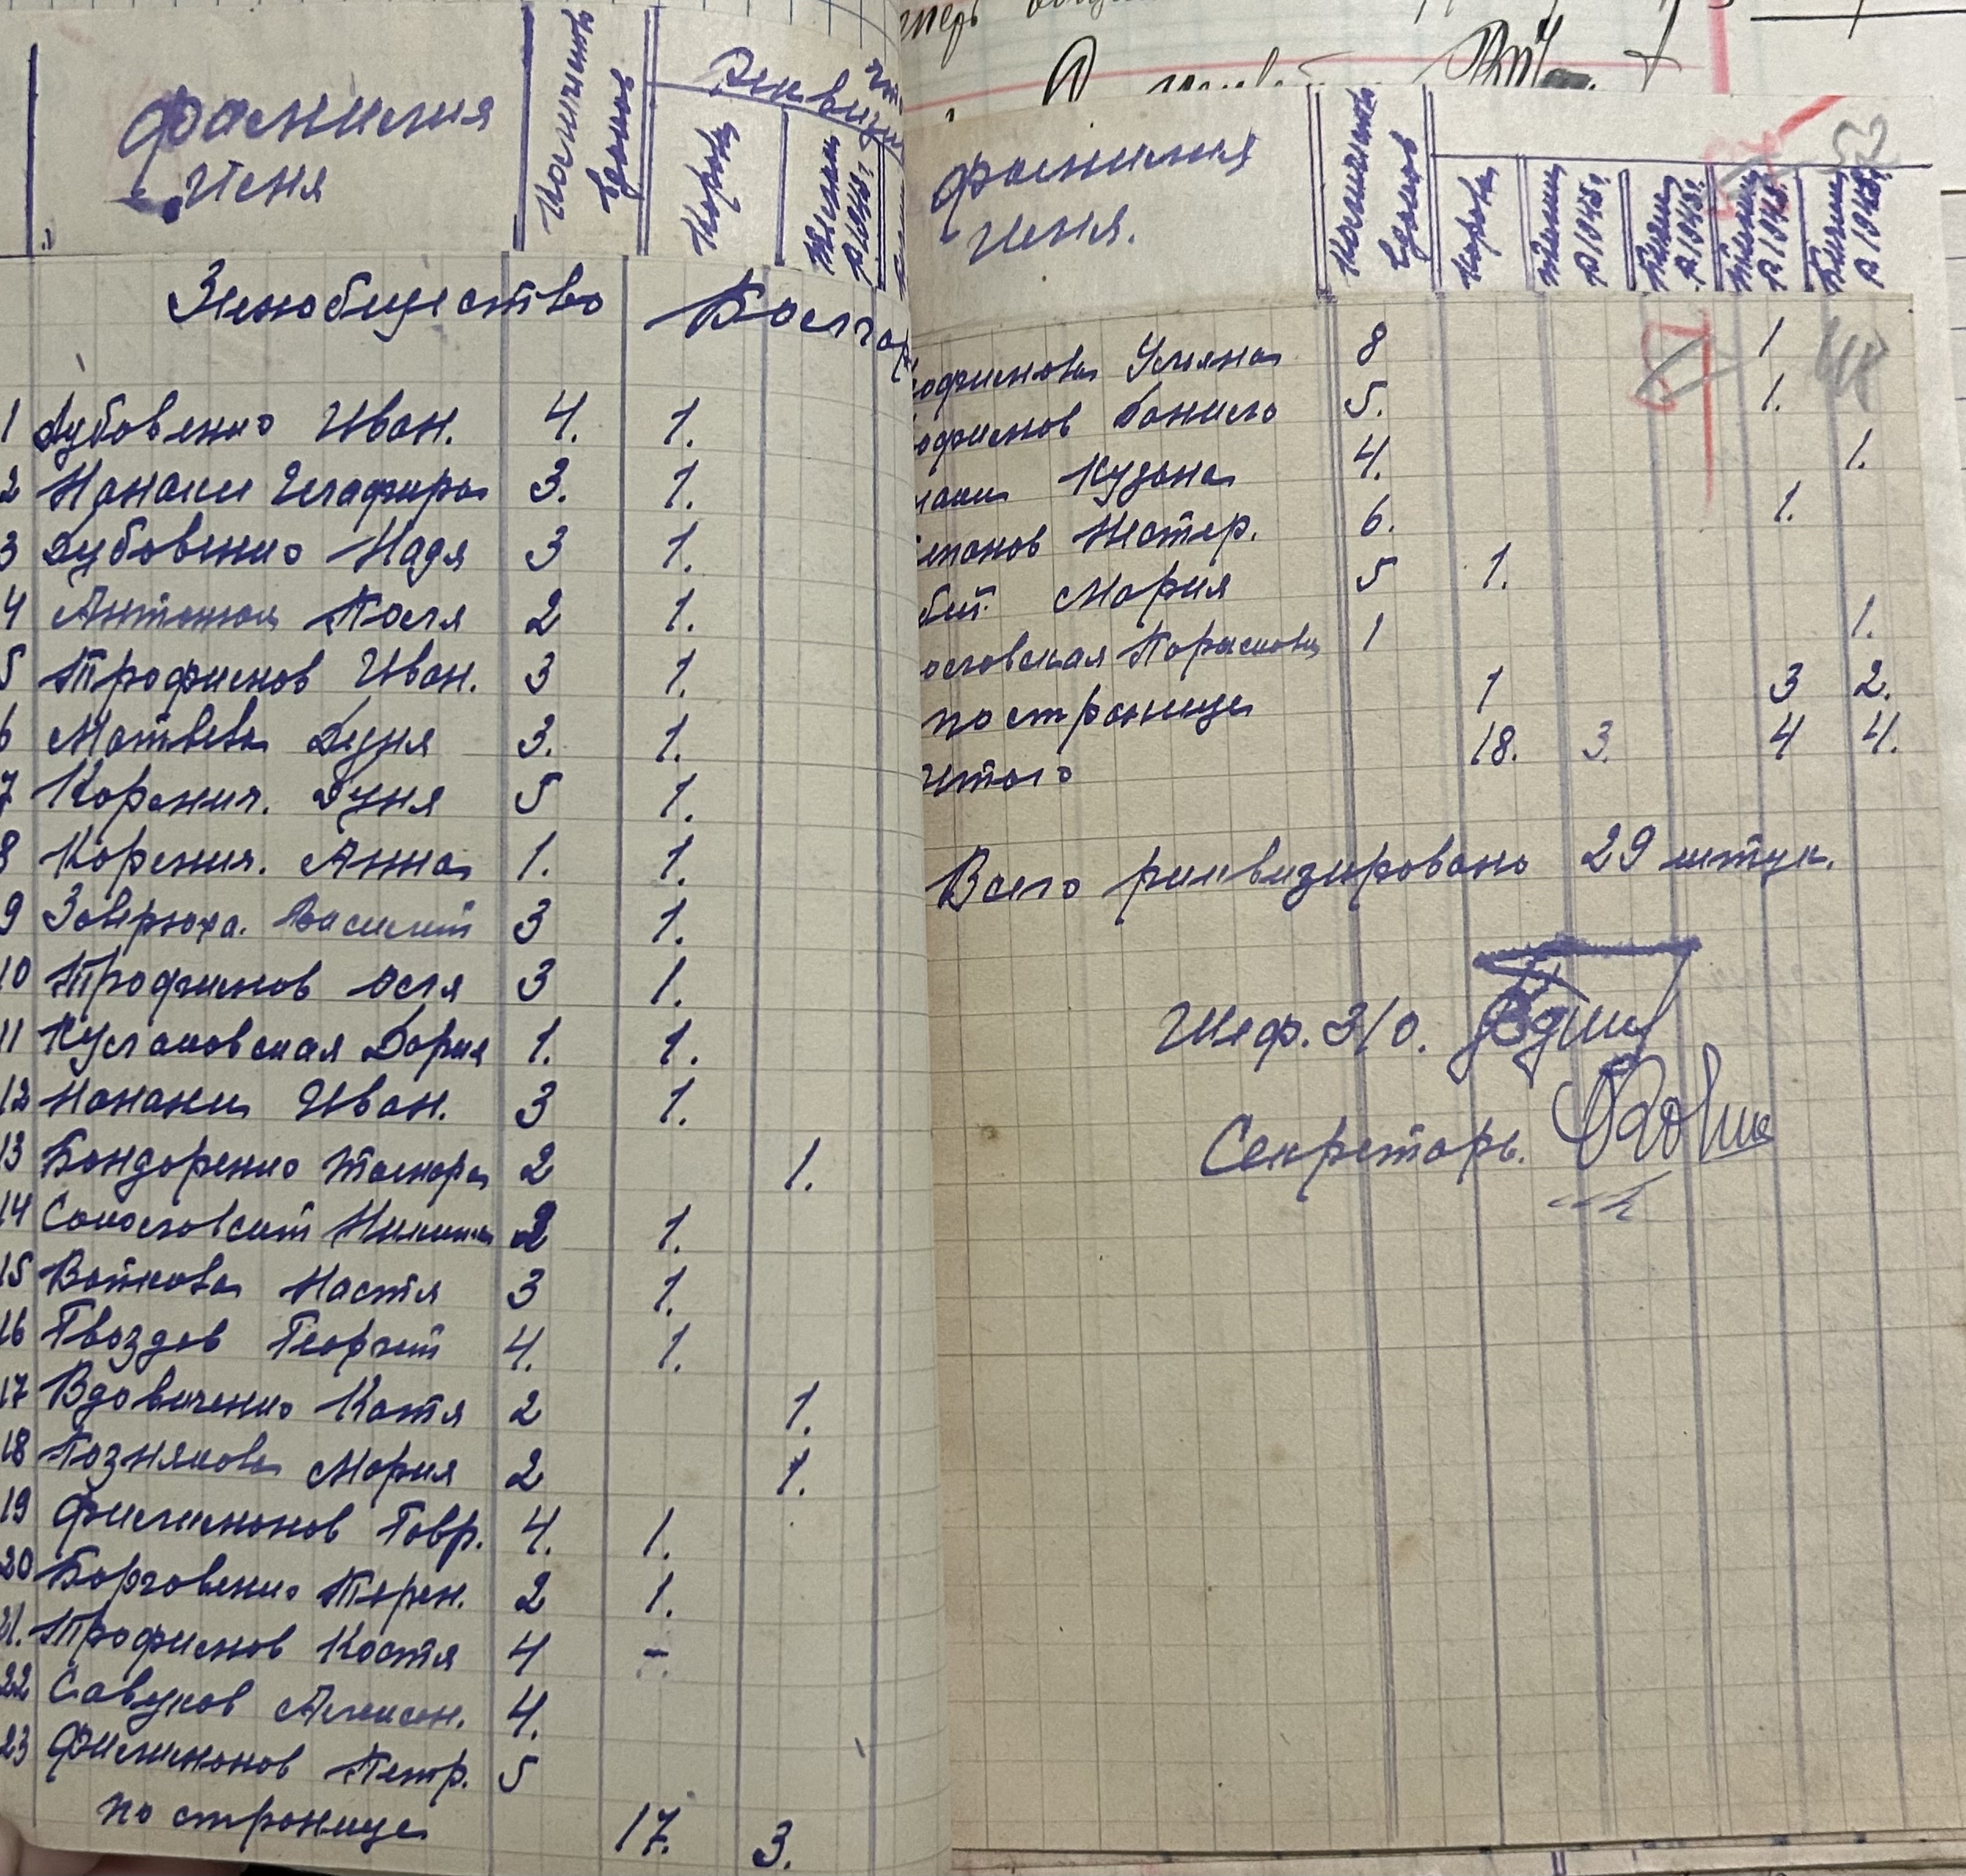 фамилия
имя
Количество
Едоков
Реквизи
Коровы
Телки
р. 1943 г.
Земобщество Болгар
1 Дубовенко Иван. 4. 1.
2 Нанаки Глафира 3. 1.
3 Дубовенко Надя 3 1.
4 Антонюк Поля 2 1.
5 Трофимов Иван. 3 1.
6 Матвеева Дуня 3. 1.
7 Корения. Дуня 5 1.
8 Корения. Анна 1. 1.
9 Заверюха. Василий 3 1.
10 Трофимов Осля 3 1.
11 Куслаковская Дария 1. 1.
12 Нанаки Иван. 3 1.
13 Бондаренко Тамара 2 1.
14 Сокословский Никита 2 1.
15 Войкова Настя 3 1.
16 Гвоздев Георгий 4. 1.
17 Вдовиченко Катя 2 1.
18 Познякова Мария 2 1.
19 Филимонов Гавр. 4. 1.
20 Борговенко Терен. 2 1.
21. Трофимов Костя 4 -
22 Савуков Алексан. 4.
23 Филимонов Петр. 5
по странице 17. 3.
фамилия
имя.
Количество
Едоков
Корова
Телки
р. 1943 г.
р. 1943 г.
р. 1943 г.
р. 1943 г.
52
офимова Ульяна 8 1
48
офимов Данило 5. 1.
наки Кузьма 4. 1.
епанов Нестер. 6. 1.
бий. Мария 5 1.
ословская Парасковия 1 1.
по странице 1 3 2.
итого 18. 3. 4 4.
Всего риквизировано 29 штук.
Шеф. З/О.
Секретарь.